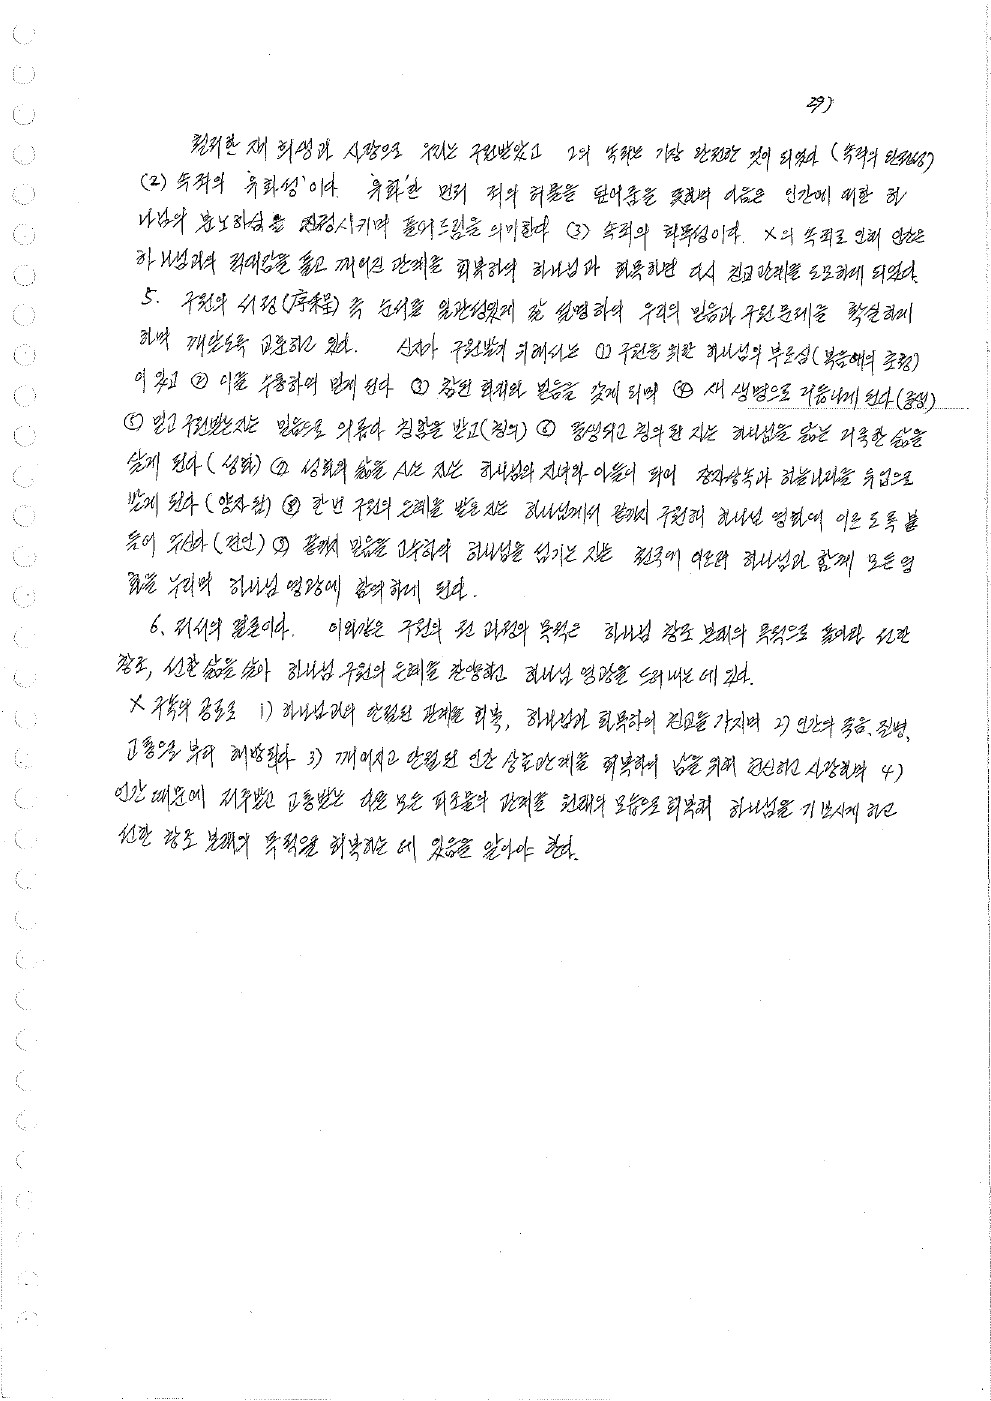 29)
필요한 재 희생과 사랑으로 우리는 구원받았고 그의 속죄는 가장 완전한 것이 되었다 (속죄의 완전성)
(2) 속죄의 '유화성'이다. '유화'란 먼저 적의 허물을 덮어줌을 뜻하며 다음은 인간에 대한 하
나님의 분노하심을 진정시키며 풀어드림을 의미한다 (3) 속죄의 화목성이다. X의 속죄로 인해 인간은
하나님과의 적대감을 풀고 깨어진 관계를 회복하여 하나님과 화목하면 다시 친교관계를 도모하게 되었다.
5. 구원의 서정(序程) 즉 순서를 일관성있게 잘 설명하여 우리의 믿음과 구원문제를 확실하게
하며 깨닫도록 교훈하고 있다. 신자가 구원받기 위해서는 ① 구원을 위한 하나님의 부르심(복음에의 초청)
이 있고 ② 이를 수용하여 믿게 된다 ③ 참된 회개와 믿음을 갖게 되며 ④ 새 생명으로 거듭나게 된다(중생)
⑤ 믿고 구원받는자는 믿음으로 의롭다 칭함을 받고(칭의) ⑥ 중생되고 칭의된 자는 하나님을 닮는 거룩한 삶을
살게 된다(성화) ⑦ 성화의 삶을 사는 자는 하나님의 자녀와 아들이 되어 장자상속과 하늘나라를 유업으로
받게 된다(양자됨) ⑧ 한번 구원의 은혜를 받은자는 하나님께서 끝까지 구원해 하나님 영화에 이르도록 붙
들어 주신다(견인) ⑨ 끝까지 믿음을 고수하여 하나님을 섬기는 자는 천국에 이르러 하나님과 함께 모든 영
화를 누리며 하나님 영광에 참여하게 된다.
6. 저서의 결론이다. 이와같은 구원의 전 과정의 목적은 하나님 창조 본래의 목적으로 돌아와 선한
창조, 선한 삶을 살아 하나님 구원의 은혜를 찬양하고 하나님 영광을 드러내는데 있다.
X 구속의 공로로 1) 하나님과의 단절된 관계를 회복, 하나님과 화목하여 친교를 가지며 2) 인간의 죽음, 질병,
고통으로 부터 해방된다 3) 깨어지고 단절된 인간 상호관계를 회복하여 남을 위해 헌신하고 사랑하며 4)
인간 때문에 저주받고 고통받는 다른 모든 피조물의 관계를 원래의 모습으로 회복해 하나님을 기쁘시게 하고
선한 창조 본래의 목적으로 회복하는 데 있음을 알아야 한다.